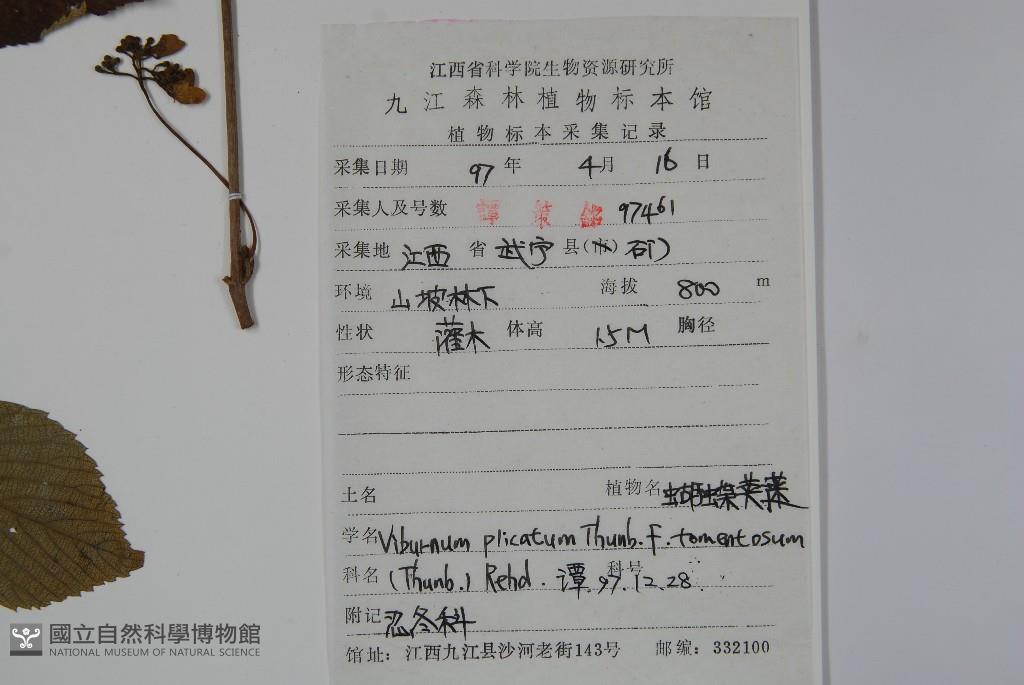 江西省科学院生物资源研究所
九江森林植物标本馆
植物标本采集记录
采集日期 97年 4月 16日
采集人及号数 譚策銘 97461
采集地 江西省 武宁县(市) 石门
环境 山坡林下 海拔 800 m
性状 灌木 体高 1.5M 胸径
形态特征
土名 植物名 蝴蝶荚蒾
学名 Viburnum plicatum Thunb. f. tomentosum
科名 (Thunb.) Rehd. 谭 97.12.28. 科号
附记 忍冬科
馆址：江西九江县沙河老街143号 邮编：332100
國立自然科學博物館
NATIONAL MUSEUM OF NATURAL SCIENCE